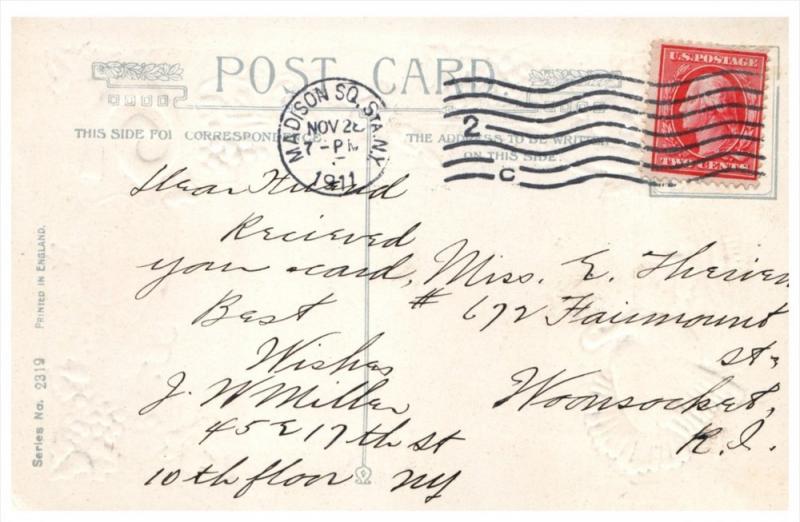 POST CARD.
THIS SIDE FOR CORRESPONDENCE.
THE ADDRESS TO BE WRITTEN
ON THIS SIDE.
MADISON SQ. STA. N.Y.
NOV 28
7-PM
1911
2
C
U.S. POSTAGE
TWO CENTS
Dear Friend
Recieved
your card,
Best
Wishes
J. W Miller
45 E 17th st
10th floor NY
Miss. E. Therien
# 672 Fairmount
st,
Woonsocket,
R.I.
Series No. 2319 PRINTED IN ENGLAND.